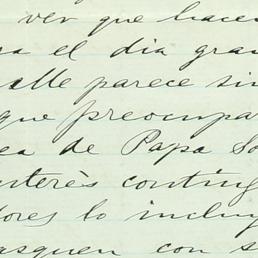 ver que hacen
el dia gran
alle parece sin
que preocupar
ea de Papa So
interès conting
dores lo incluy
asquen con s